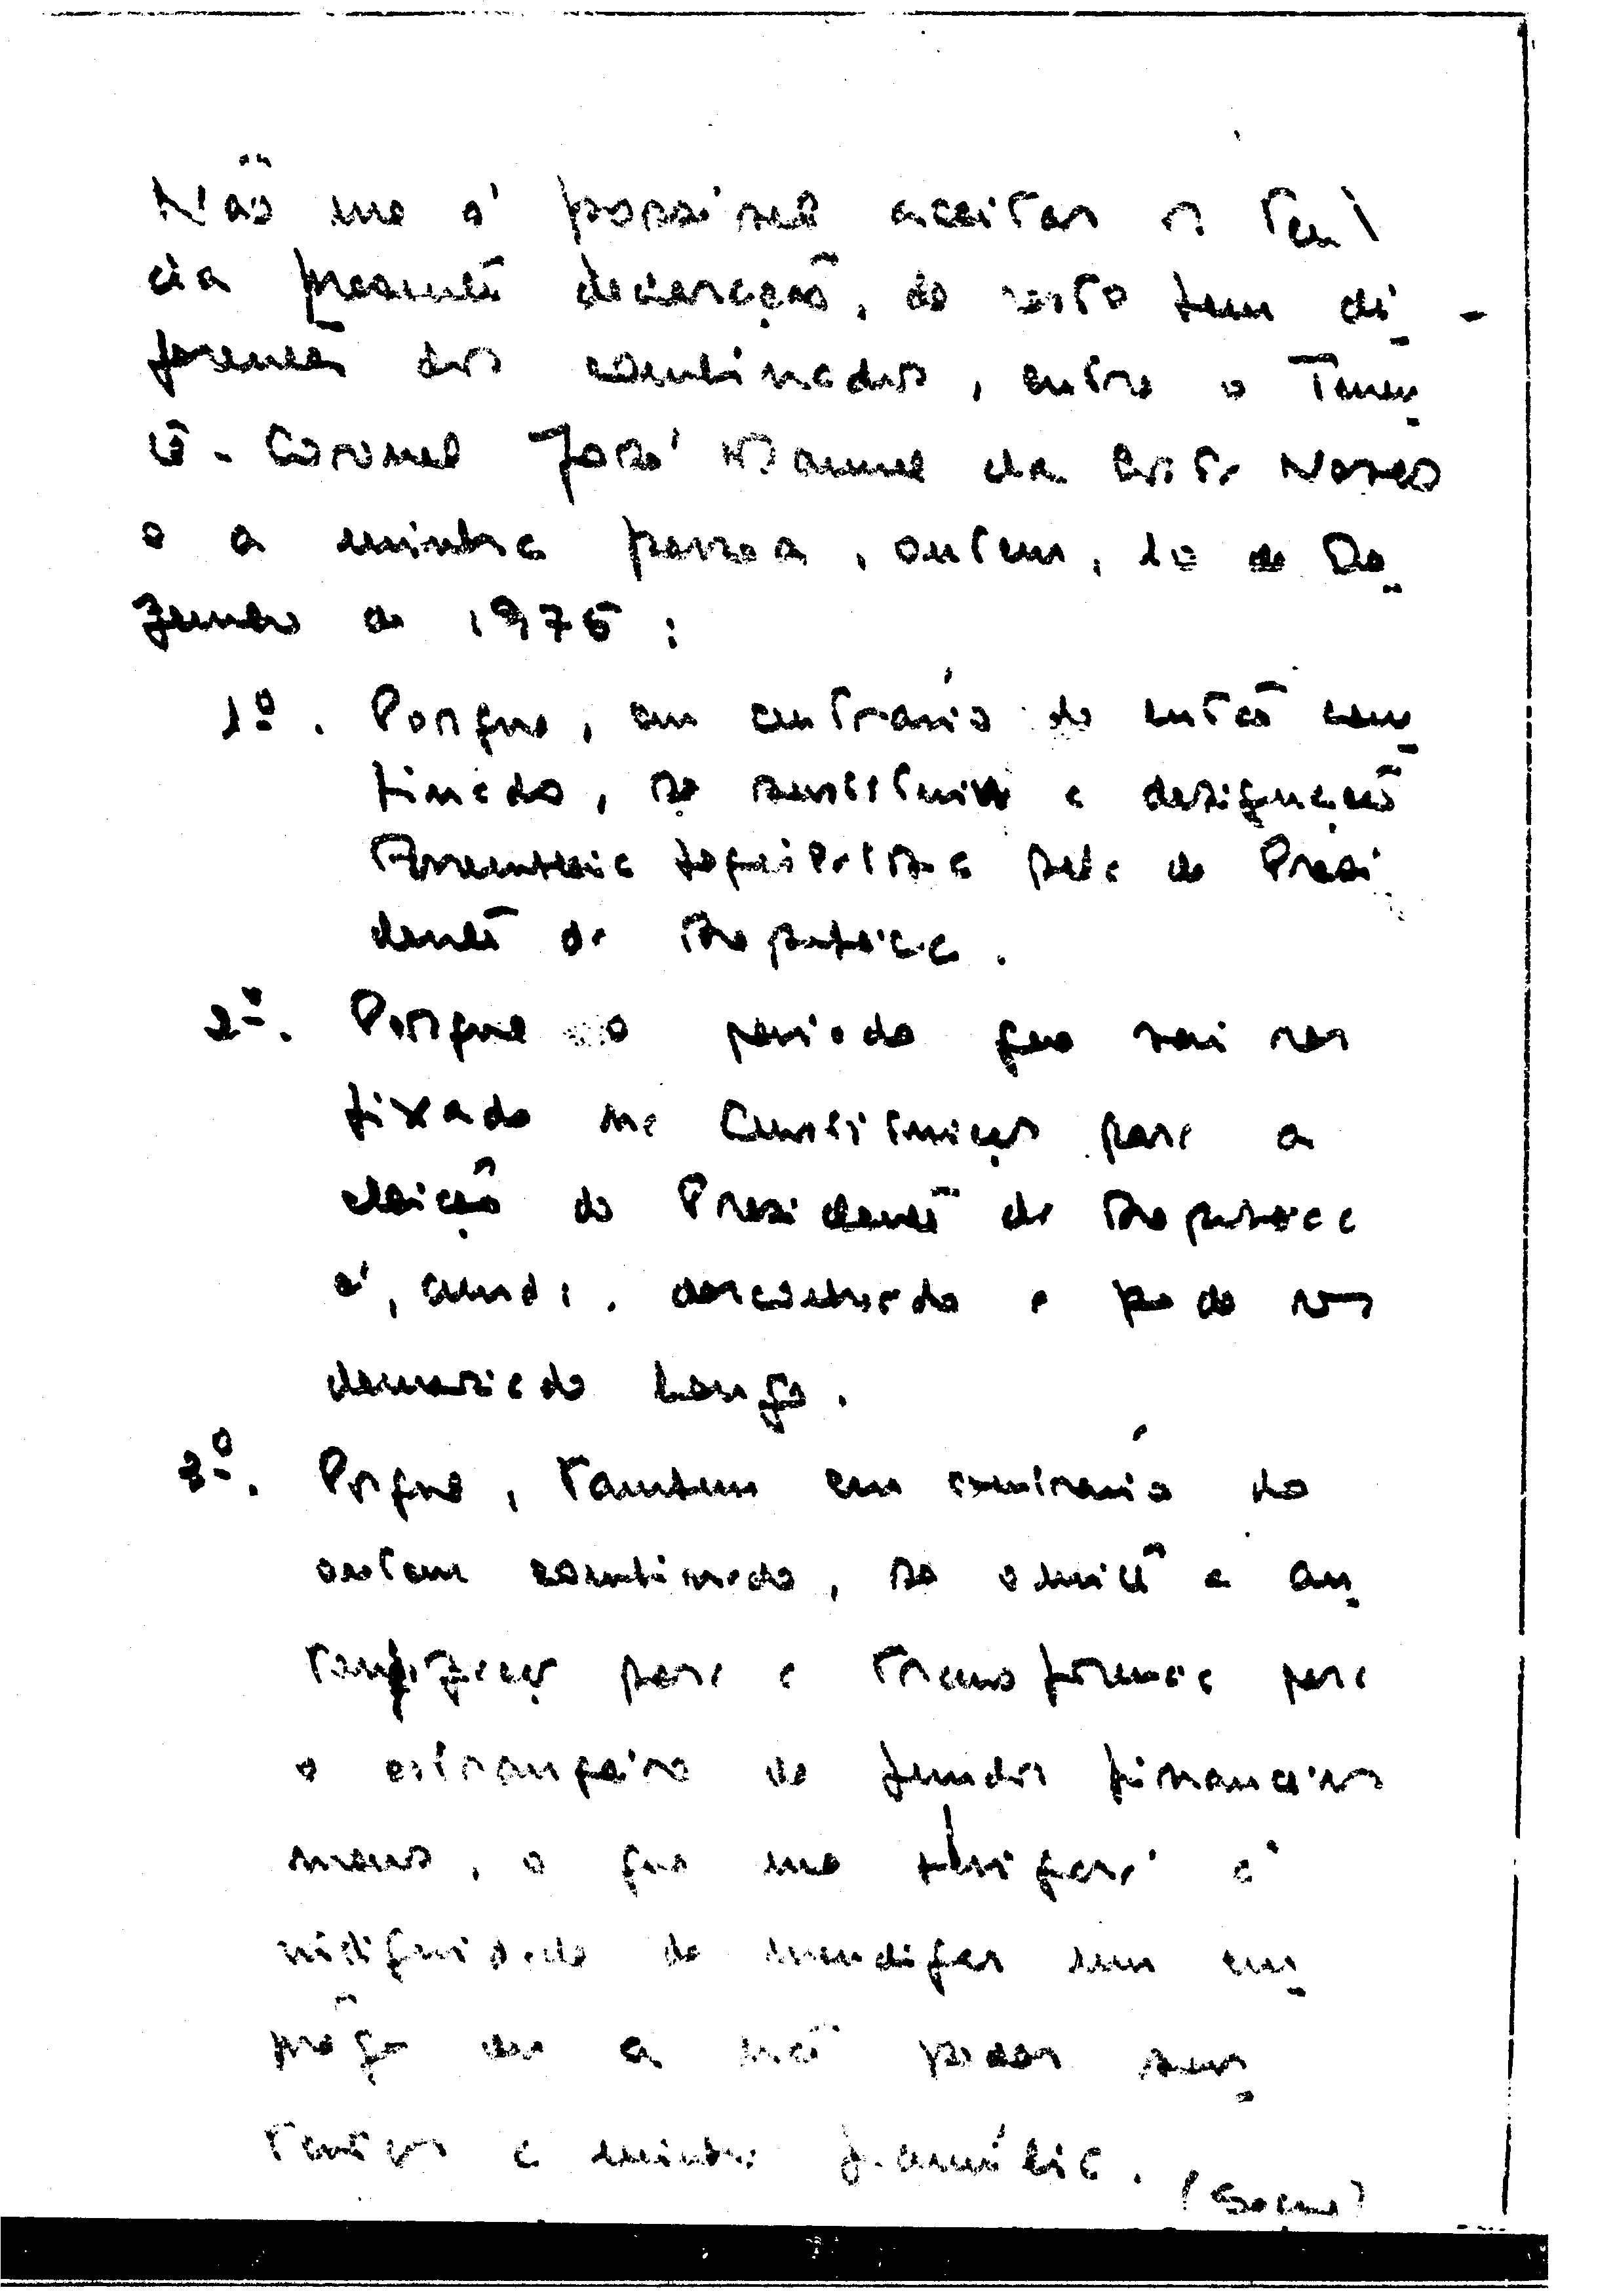 Não me é possivel aceitar o teor
da presente declaração, do resto bem di-
ferente dos combinados, entre o Tenen
te-Coronel José Manuel da Costa Neves
e a minha pessoa, ontem, de De
zembro de 1975:
1º. Porque, em contrário do então com
binado, se substituiu a designação
Assembleia Legislativa pela de Presi
dente da Republica.
2º. Porque o periodo que vai ser
fixado na Constituição para a
eleição do Presidente da Republica
é, ainda, desconhecido e pode ser
demasiado longo.
3º. Porque, tambem em contrário do
ontem combinado, se omite a au
torização para a transferencia para
o estrangeiro de fundos financeiros
meus, o que me obrigará à
indignidade de mendigar um em
prêgo ou a não poder sus
tentar a minha familia.
(Segue)